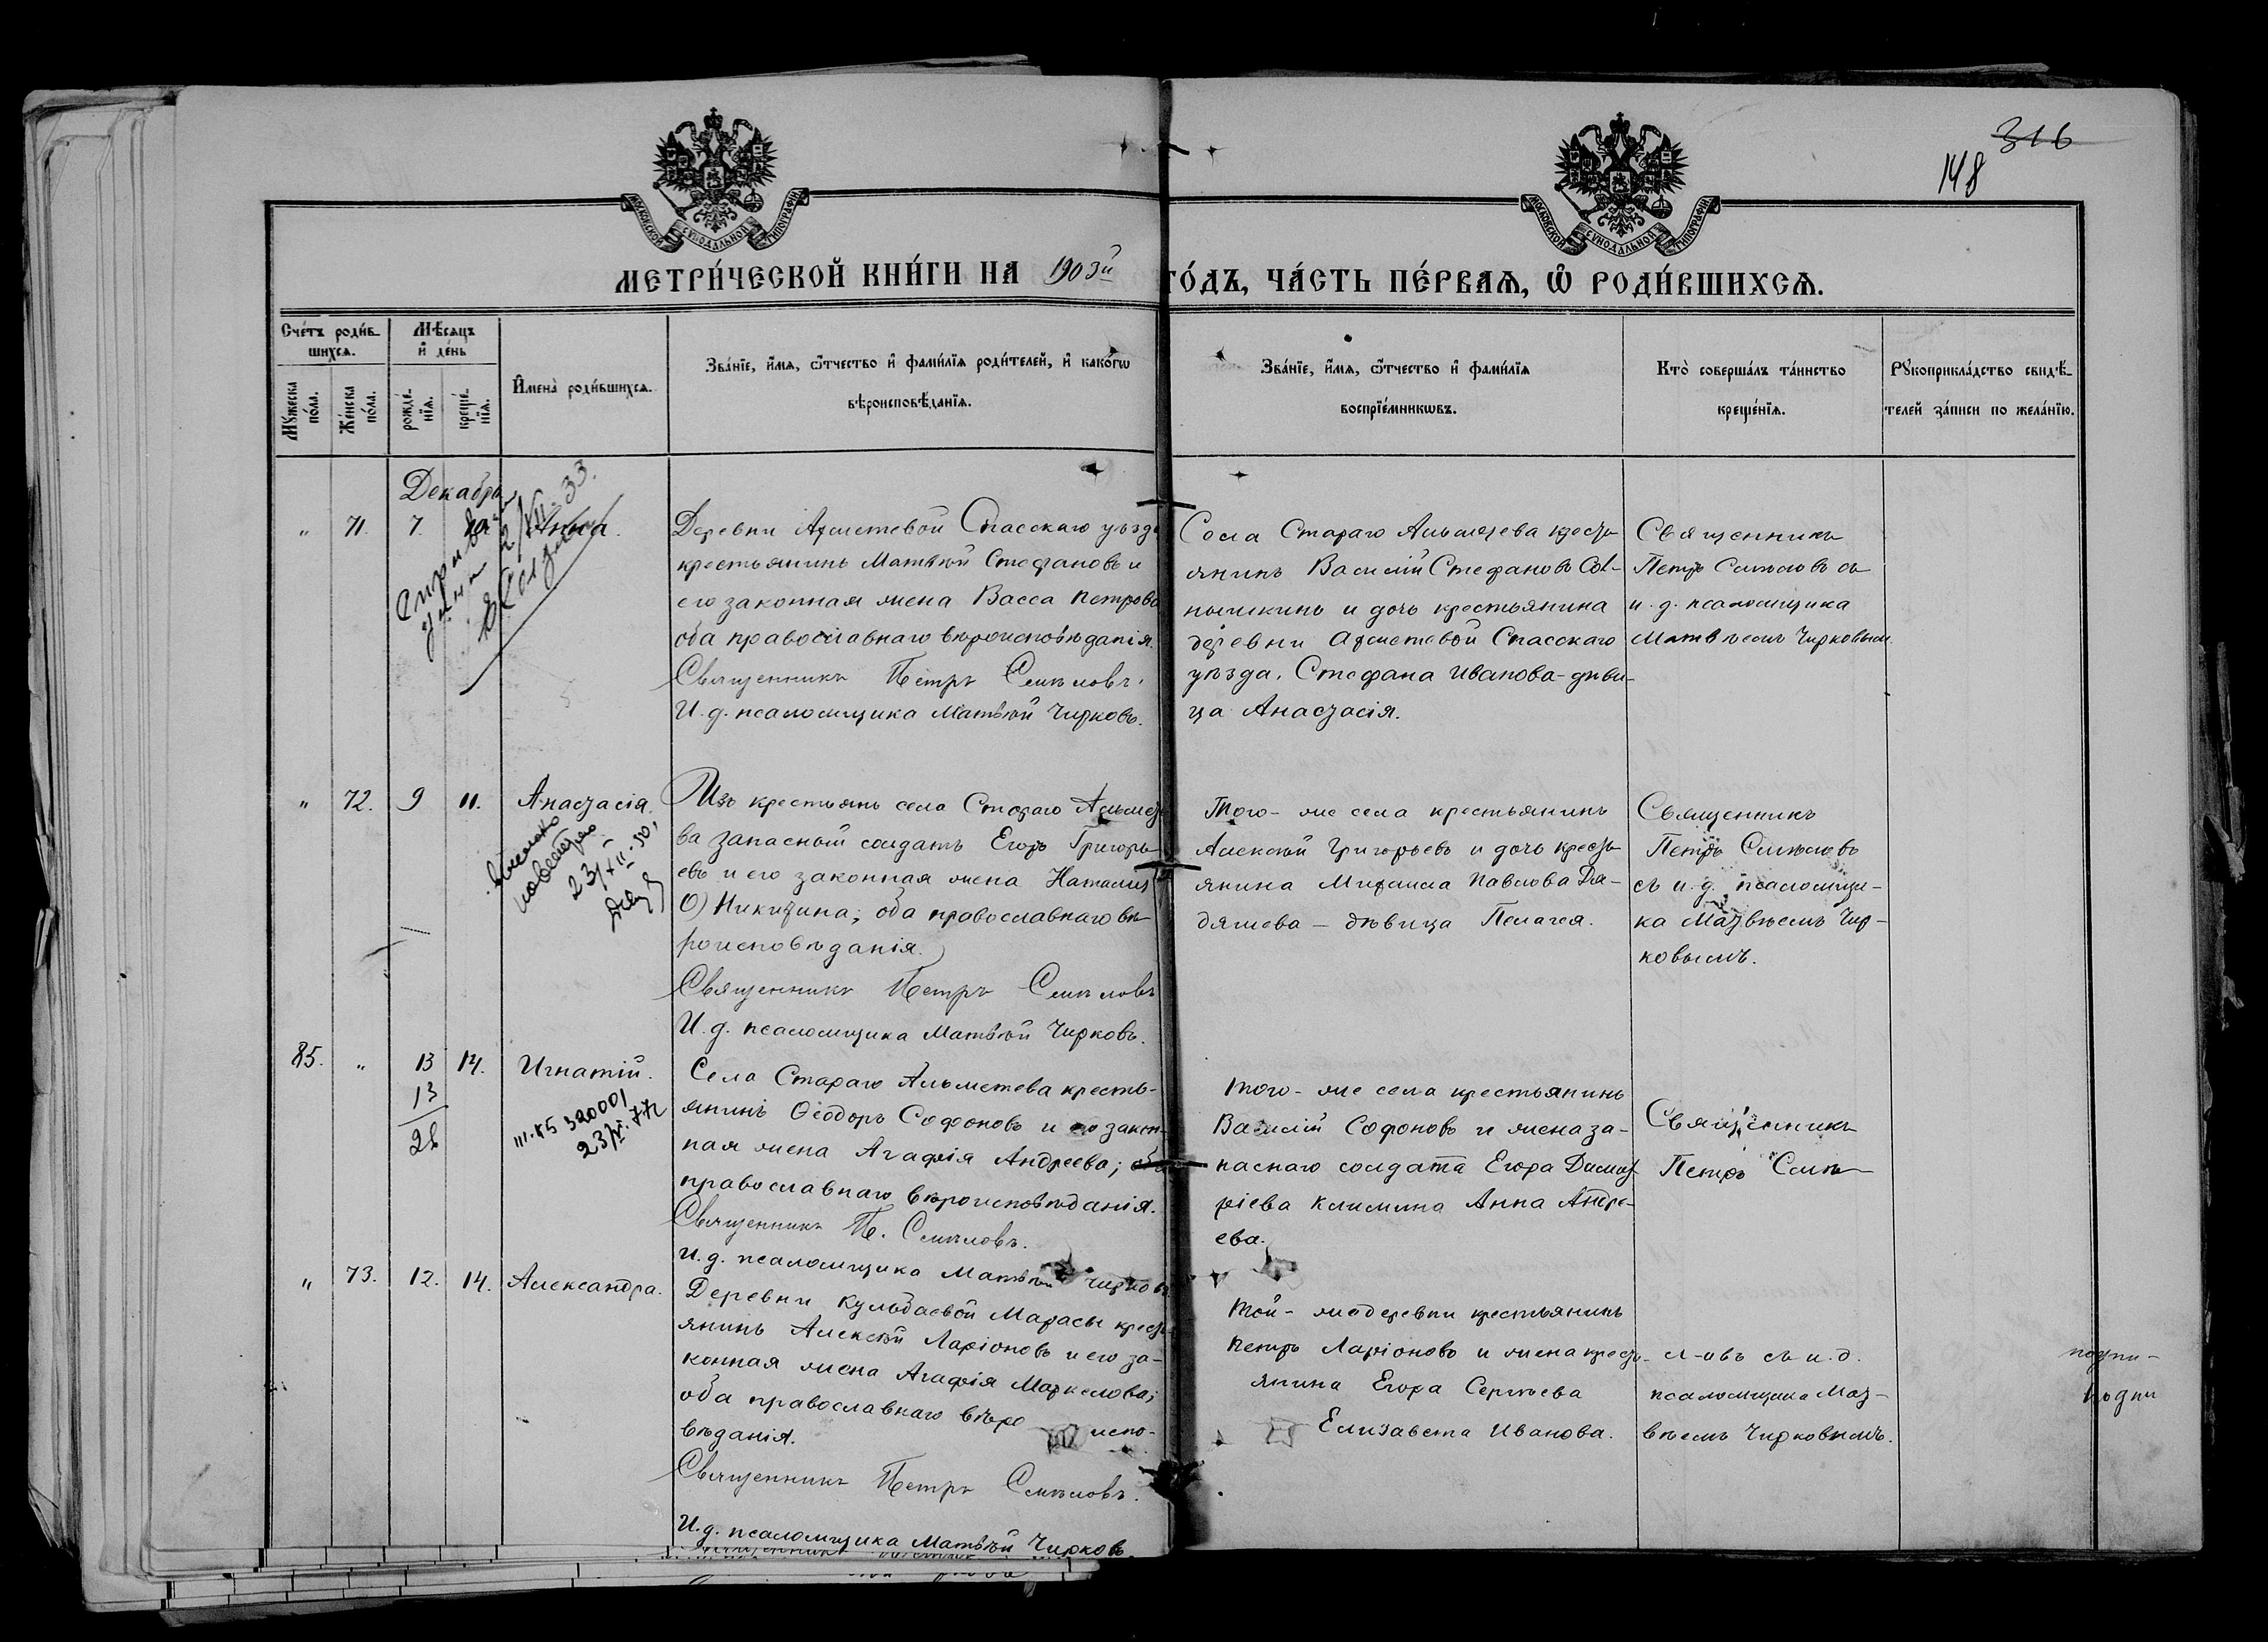 316
148
МОСКОВСКОЙ СѴНОДАЛЬНОЙ ТИПОГРАФІИ
МОСКОВСКОЙ СѴНОДАЛЬНОЙ ТИПОГРАФІИ
МЕТРИ́ЧЕСКОЙ КНИ́ГИ НА 1903й ГО́ДЪ, ЧА́СТЬ ПЕ́РВАѦ, Ѽ РОДИ́ВШИХСѦ.
Сче́тъ роди́в-
шихсѧ.
Мꙋ́жеска по́ла.
Же́нска по́ла.
Мѣ́сѧцъ
и҆ де́нь
рожде́-
нїѧ.
креще́-
нїѧ.
И҆мена̀ роди́вшихсѧ.
Зва́нїе, и҆́мѧ, ѻ҆́тчество и҆ фами́лїѧ роди́телей, и҆ како́гѡ
вѣроисповѣ́данїѧ.
Зва́нїе, и҆́мѧ, ѻ҆́тчество и҆ фами́лїѧ
воспрїе́мникѡвъ.
Кто̀ соверша́лъ та́инство
креще́нїѧ.
Рꙋкоприкла́дство свидѣ́-
телей за́писи по жела́нїю.
Декабрь
" 71. 7. 10. Анна.
Деревни Ахметевой Спасскаго уѣзда
крестьянинъ Матвѣй Стефановъ и
его законная жена Васса Петрова
оба православнаго вѣроисповѣданія.
Священникъ Петръ Смѣловъ.
И. д. псаломщика Матвѣй Чирковъ.
Села Стараго Альметева кресть-
янинъ Василій Стефановъ
и дочь крестьянина
деревни Ахметевой Спасскаго
уѣзда, Стефана Иванова - дѣви-
ца Анастасія.
Священникъ
Петръ Смѣловъ съ
и. д. псаломщика
Матвѣемъ Чирковым
" 72. 9 11. Анастасія.
23/XII-30.
Изъ крестьянъ села Стараго Альмете
ва запасный солдатъ Егоръ Григорь-
евъ и его законная жена Наталия
Никитина; оба православнаго вѣ-
роисповѣданія.
Священникъ Петръ Смѣловъ
И. д. псаломщика Матвѣй Чирковъ.
Того-же села крестьянинъ
Алексѣй Григорьевъ и дочь кресть-
янина Михаила Павлова Дя-
дяшева - дѣвица Пелагея.
Священникъ
Петръ Смѣловъ
съ и. д. псаломщи-
ка Матвѣемъ Чир-
ковымъ.
85. " 13 14. Игнатій.
13
28
Села Стараго Альметева кресть-
янинъ Ѳеодоръ Софоновъ и его закон-
ная жена Агафія Андреева; оба
православнаго вѣроисповѣданія.
Священникъ П. Смѣловъ.
И. д. псаломщика Матвѣй Чирковъ
Того-же села крестьянинъ
Василій Софоновъ и жена за-
паснаго солдата Егора Димит
ріева Климина Анна Андре-
ева.
Священникъ
Петръ Смѣ-
" 73. 12. 14. Александра.
Деревни Кульбаевой Марасы кресть
янинъ Алексѣй Ларіоновъ и его за-
конная жена Агафія Маркелова;
оба православнаго вѣро испо-
вѣданія.
Священникъ Петръ Смѣловъ.
И. д. псаломщика Матвѣй Чирковъ.
Той-же деревни крестьянинъ
Петръ Ларіоновъ и жена кресть-
янина Егора Сергѣева
Елизавета Иванова.
л-овъ съ и. д.
псаломщика Мат-
вѣемъ Чирковымъ.